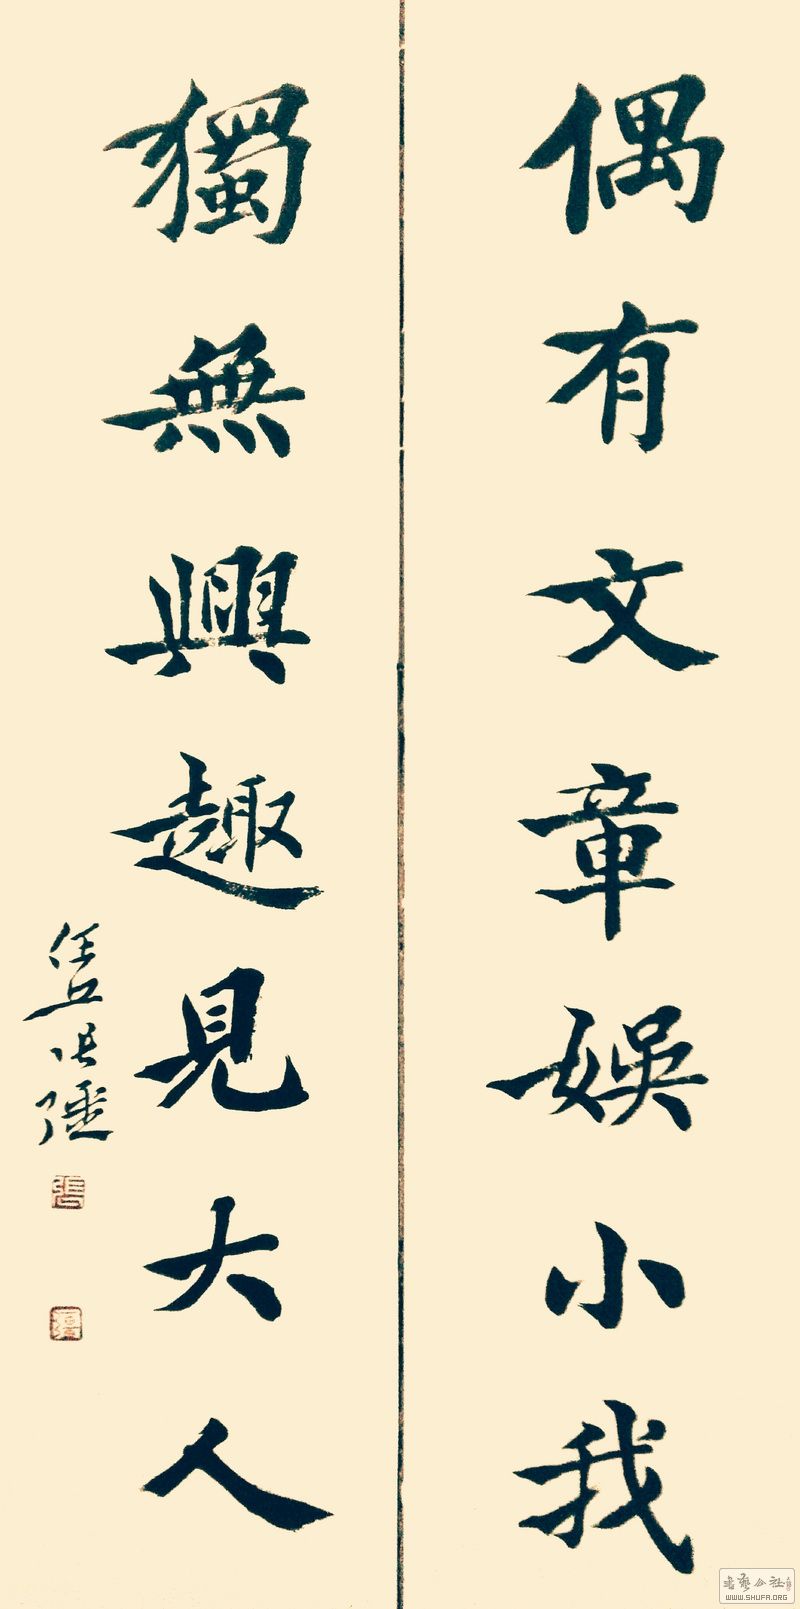 偶有文章娛小我
獨無興趣見大人
任丘張
書藝公社
WWW.SHUFA.ORG